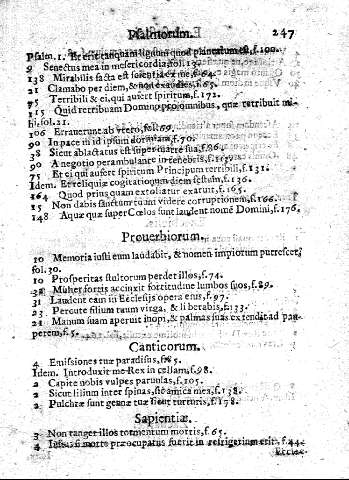 Psalmorum. 247
Psalm. 1. Et erit tanquam lignum quod plantatum est, f. 100.
9 Senectus mea in misericordia fol. 13.
138 Mirabilis facta est scientia ex me, f. 64.
21 Clamabo per diem, & non exaudies, f. 65.
75 Terribili & ei, qui aufert spiritum, f. 172.
115 Quid retribuam Domino pro omnibus, quæ retribuit mi-
hi, fol. 21.
106 Errauerunt ab vtero, f. 69.
90 In pace in id ipsum dormiam, f. 70.
38 Sicut ablactatus est super matre sua, f. 96.
90 A negotio perambulante in tenebris, f.
75 Et ei qui aufert spiritum Principum terribili, f. 131.
Idem. Et reliquiæ cogitationum diem festum, f. 136.
164 Quod priusquam extollatur exaruit, f. 165.
15 Non dabis sanctum tuum videre corruptionem, f. 166.
148 Aquæ quæ super Cœlos sunt laudent nomẽ Domini, f. 176.
Prouerbiorum.
10 Memoria iusti cum laudabit, & nomen impiorum putrescet,
fol. 30.
10 Prosperitas stultorum perdet illos, f. 74.
31 Mulier fortis accinxit fortitudine lumbos suos, f. 89.
31 Laudent eam in Ecclesijs opera eius, f. 97.
23 Percute filium tuum virga, & liberabis, f. 133.
21 Manum suam aperuit inopi, & palmas suas extendit ad pau-
perem, f. 5.
Canticorum.
4 Emissiones tuæ paradisus, f. 85.
Idem. Introduxit me Rex in cellam, f. 98.
2 Capite nobis vulpes paruulas, f. 105.
2 Sicut lilium inter spinas, sic amica mea, f. 138.
2 Pulchræ sunt genæ tuæ sicut turturis, f. 178.
Sapientiæ.
3 Non tanget illos tormentum mortis, f. 65.
4 Iustus si morte præocupatus fuerit in refrigerium erit, f. 44.
Eccles-